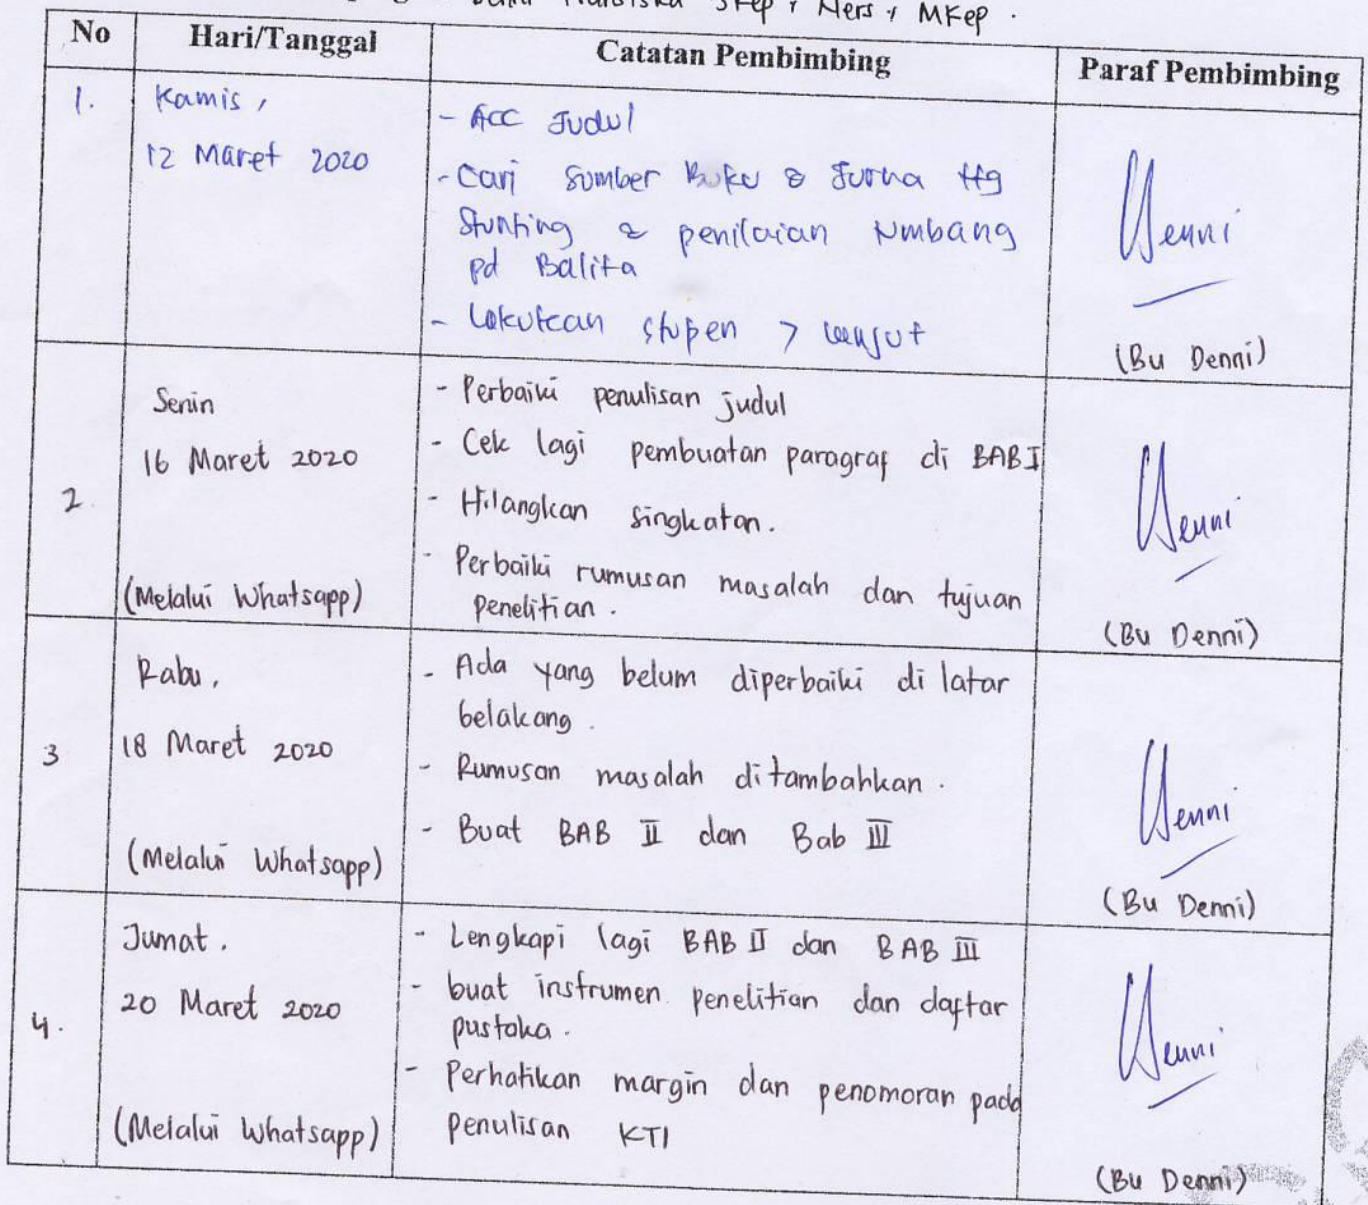 SKep, Ners, MKep.
No Hari/Tanggal Catatan Pembimbing Paraf Pembimbing
1. Kamis,
12 Maret 2020
- ACC Judul
- Cari Sumber Buku & Jurna ttg
Stunting & penilaian
pd Balita
- Lakukan stupen > lanjut
(Bu Denni)
2.
Senin
16 Maret 2020
(Melalui Whatsapp)
- Perbaiki penulisan judul
- Cek lagi pembuatan paragraf di BAB I
- Hilangkan singkatan.
- Perbaiki rumusan masalah dan tujuan
penelitian.
(Bu Denni)
3
Rabu,
18 Maret 2020
(Melalui Whatsapp)
- Ada yang belum diperbaiki di latar
belakang.
- Rumusan masalah ditambahkan.
- Buat BAB II dan Bab III
(Bu Denni)
4.
Jumat.
20 Maret 2020
(Melalui Whatsapp)
- Lengkapi lagi BAB II dan BAB III
- buat instrumen penelitian dan daftar
pustaka.
- Perhatikan margin dan penomoran pada
penulisan KTI
(Bu Denni)